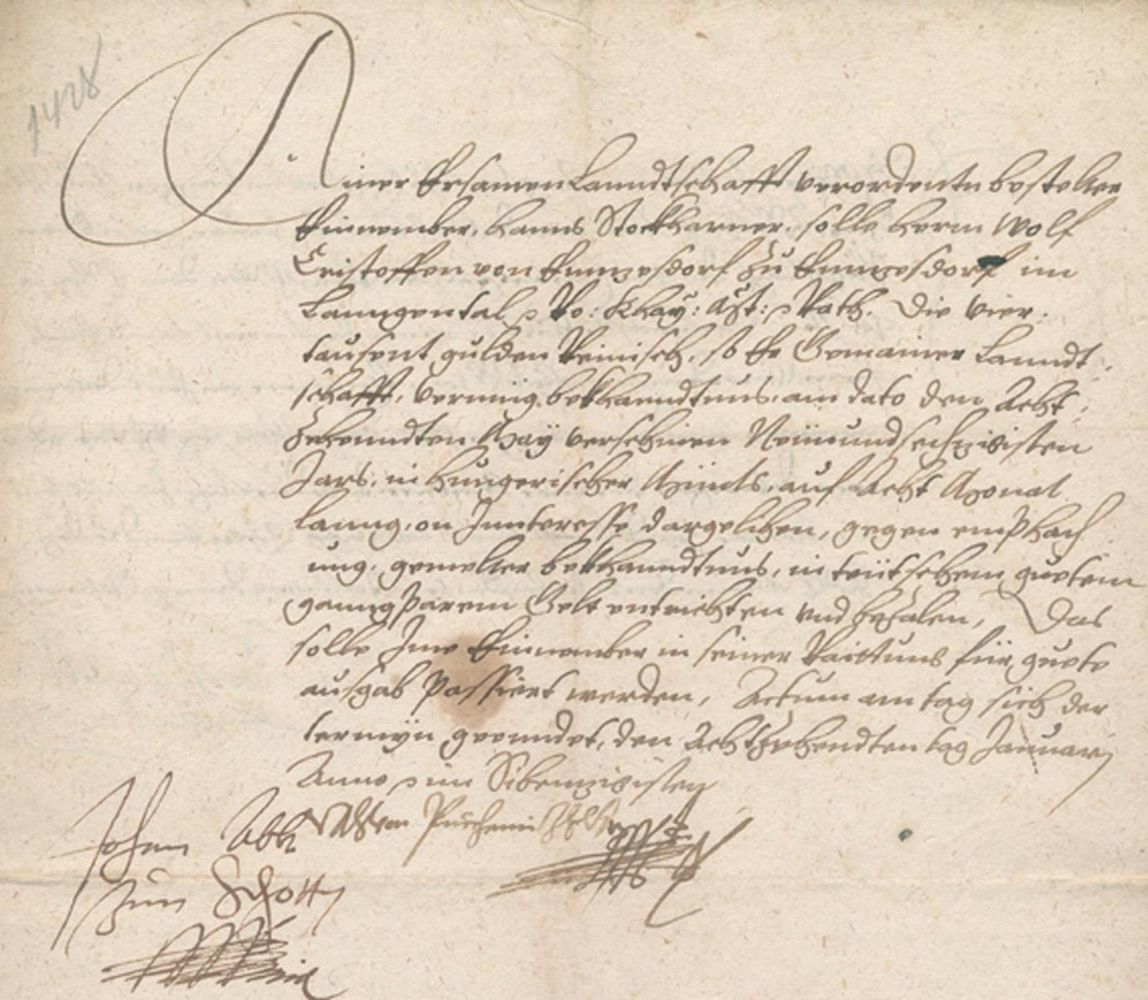 1428
Ainer Ersamen Lanndtschafft verordenter bestelter
Einnember, Hanns Stockharner, solle herrn Wolf
Cristoffen von Ennzesdorf zu Ennzesdorf im
Lanngental, Rö: Khay: Mst: Rath, die vier
tausent gulden Reinisch, so Er Gemainer Lanndt
schafft, vermüg bekhanndtnus, am dato den Acht
zehenndten May verschinen Neünundsechzigisten
Jars, in Hungerischer Münts, auf Acht Monat
lanng, on Innteresse dargelihen, gegen emphach
ung, gemelter bekhanndtnus, in teütschem guetem
ganng parem Gelt entrichten und bezalen, Das
solle Ime Einnember in seiner Raittung für guete
ausgab passiert werden, Actum am tag sich der
termyn geenndet, den Achtzehendten tag Januarj
Anno im Sibenzigisten
Johan Abbt
zun Schotten